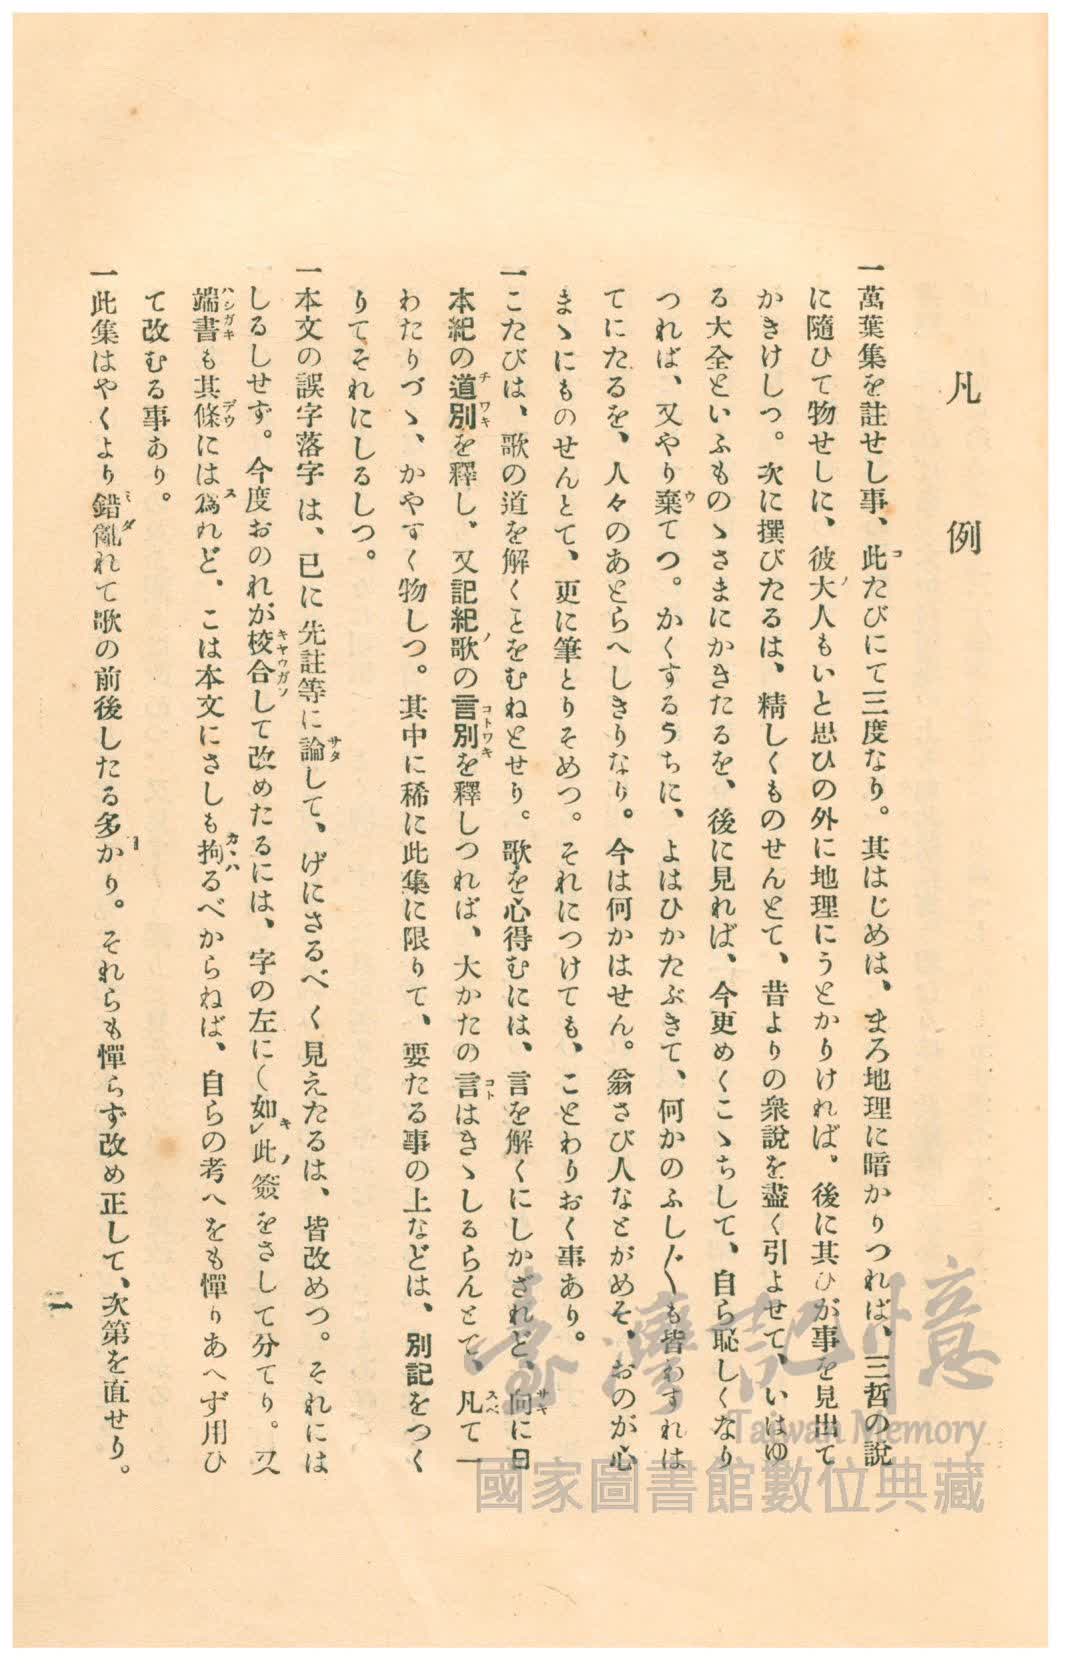 凡例
一萬葉集を註せし事、此たびにて三度なり。其はじめは、まろ地理に暗かりつれば、三哲の說
に隨ひて物せしに、彼大人もいと思ひの外に地理にうとかりければ。後に其ひが事を見出て
かきけしつ。次に撰びたるは、精しくものせんとて、昔よりの衆說を盡く引よせて、いはゆ
る大全といふものゝさまにかきたるを、後に見れば、今更めくこゝちして、自ら恥しくなり
つれば、又やり棄てつ。かくするうちに、よはひかたぶきて、何かのふし〴〵も皆わすれは
てにたるを、人々のあとらへしきりなり。今は何かはせん。翁さび人なとがめそ、おのが心
まゝにものせんとて、更に筆とりそめつ。それにつけても、ことわりおく事あり。
一こたびは、歌の道を解くことをむねとせり。歌を心得むには、言を解くにしかざれど、向に日
本紀の道別を釋し、又記紀歌の言別を釋しつれば、大かたの言はきゝしるらんとて、凡て一
わたりづゝ、かやすく物しつ。其中に稀に此集に限りて、要たる事の上などは、別記をつく
りてそれにしるしつ。
一本文の誤字落字は、已に先註等に論して、げにさるべく見えたるは、皆改めつ。それには
しるしせず。今度おのれが校合して改めたるには、字の左に〱如㆑此簽をさして分てり。又
端書も其條には爲れど、こは本文にさしも拘るべからねば、自らの考へをも憚りあへず用ひ
て改むる事あり。
一此集はやくより錯亂れて歌の前後したる多かり。それらも憚らず改め正して、次第を直せり。
一
臺灣記憶
Taiwan Memory
國家圖書館數位典藏